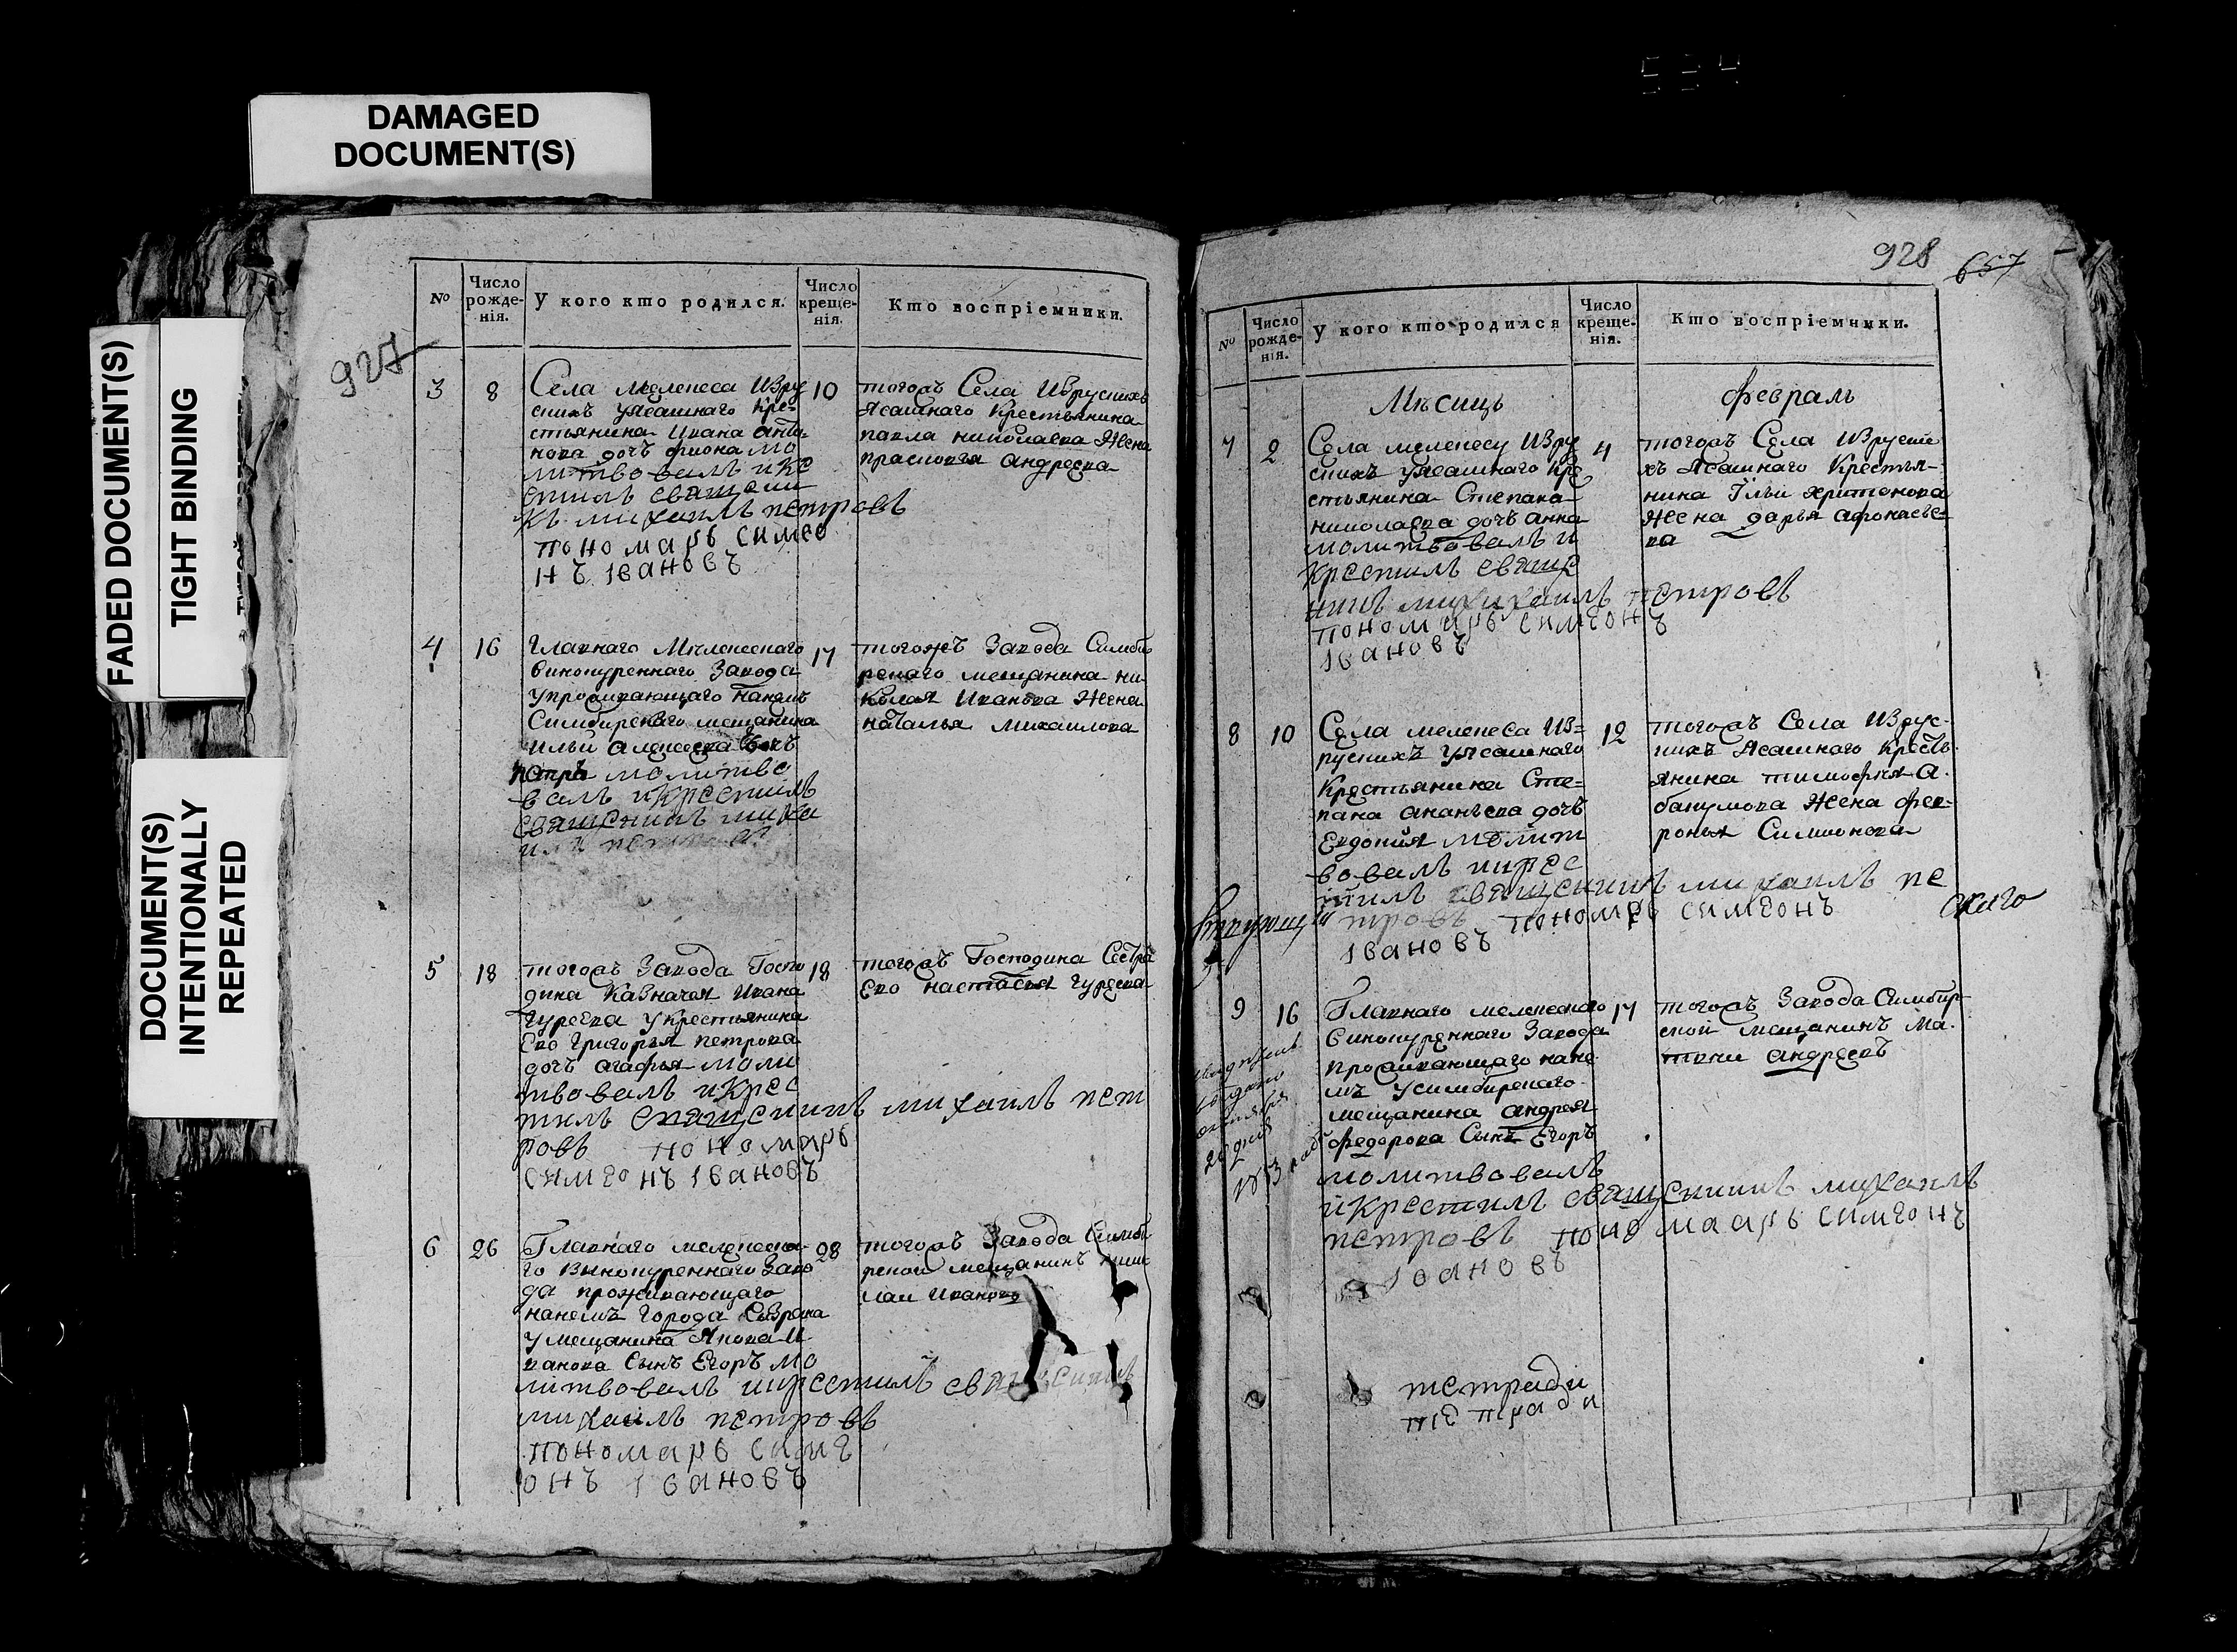 DAMAGED
DOCUMENT(S)
FADED DOCUMENT(S)
TIGHT BINDING
DOCUMENT(S)
INTENTIONALLY
REPEATED
927
№
Число рожде-нія.
У кого кто родился.
Число креще-нія.
Кто воспріемники.
3
8
Села мелекеса Изру
скихъ уясашнаго Кре=
стьянина Ивана анто-
нова дочь фиона мо
литвовалъ и кре
стилъ священи
къ михаилъ петровъ
пономарь симео
нъ Iвановъ
10
тогожъ Села Изрускихъ
Ясашнаго Крестьянина
павла николаева Жена
прасковья андреева
4
16
Главнаго Мелекескаго
винокуреннаго Завода
упроживающаго нанемъ
Симбирскаго мещанина
Ильи алексеева
петръ молитво
валъ и крестилъ
священикъ миха
илъ петровъ
17
тогожъ Завода Симби
рскаго мещанина ни-
колая Иванова Жена
наталья михаилова
5
18
тогожъ Завода Госпо
дина Казначея Ивана
Гурьева укрестьянина
Ево григорья петрова
дочь агафья моли
твовалъ и крес
тилъ священикъ михаилъ пет
ровъ пономарь
симеонъ Iвановъ
18
тогожъ Господина Сестра
Ево настасья гурьева
6
26
Главнаго мелекеска-
го Винокуреннаго Заво
да проживающаго
нанемъ Города
умещанина Якова И
ванова Сынъ Егоръ мо
литвовалъ икрестилъ священикъ
михаилъ петровъ
пономарь симе
онъ Iвановъ
28
тогожъ Завода Симби
рской мещанинъ нико
лаи Ивановъ
928
657
№
Число рожде-нія.
У кого кто родился
Число креще-нія.
Кто воспріемники.
Мѣсицъ
февраль
7
2
Села мелекесу Изру
скихъ уясашнаго Кре
стьянина Степана
николаева дочь анна
молитвовалъ и
крестилъ свяще
никъ михихаилъ петровъ
пономарь симеонъ
Iвановъ
4
тогожъ Села Изруски
хъ Ясашнаго Крестья-
нина Ильи харитонова
Жена дарья афонасье=
ва
8
10
Села мелекеса Из=
рускихъ уясашнаго
Крестьянина Сте=
пана ананьева дочь
Евдокия молит
вовалъ икрес
тилъ священикъ михаилъ пе
тровъ пономарь симеонъ
Iвановъ
12
тогожъ Села Изрус-
кихъ Ясашнаго Кресть-
янина тимофея а-
бакумова Жена фев-
ронья Симионова
скаго
9
16
Главнаго мелекескаго
винокуреннаго Завода
проживающаго нане
мъ усимбирскаго
мещанина андрея
федорова Сынъ Егоръ
молитвовалъ
икрестилъ священикъ михаилъ
петровъ пономаарь симеонъ
Iвановъ
17
тогожъ Завода Симбир-
ской мещанинъ Ма-
твеи андреевъ
тетради
тетради